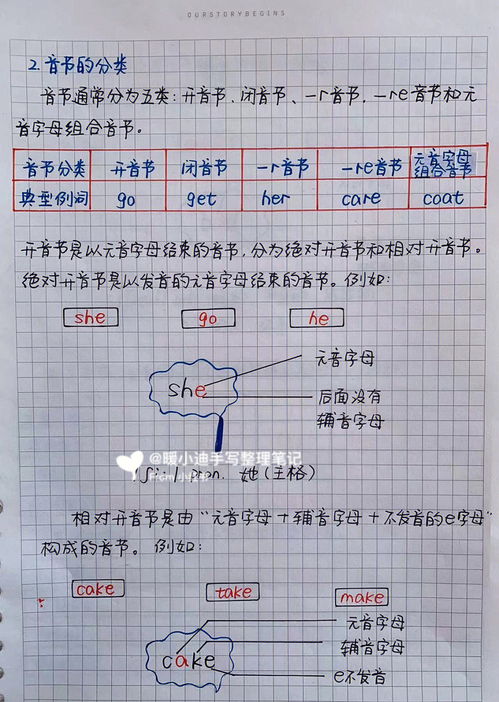 OURSTORYBEGINS
2.音节的分类
音节通常分为五类:开音节、闭音节、-r音节、-re音节和元
音字母组合音节。
音节分类 开音节 闭音节 -r音节 -re音节 元音字母组合音节
典型例词 go get her care coat
开音节是以元音字母结束的音节,分为绝对开音节和相对开音节。
绝对开音节是以发音的元音字母结束的音节。例如:
she go he
元音字母
she
后面没有
辅音字母
@暖小迪手写整理笔记
/ʃiː/ pron. 她(主格)
相对开音节是由“元音字母+辅音字母+不发音的e字母”
构成的音节。例如:
cake take make
元音字母
cake
辅音字母
e不发音